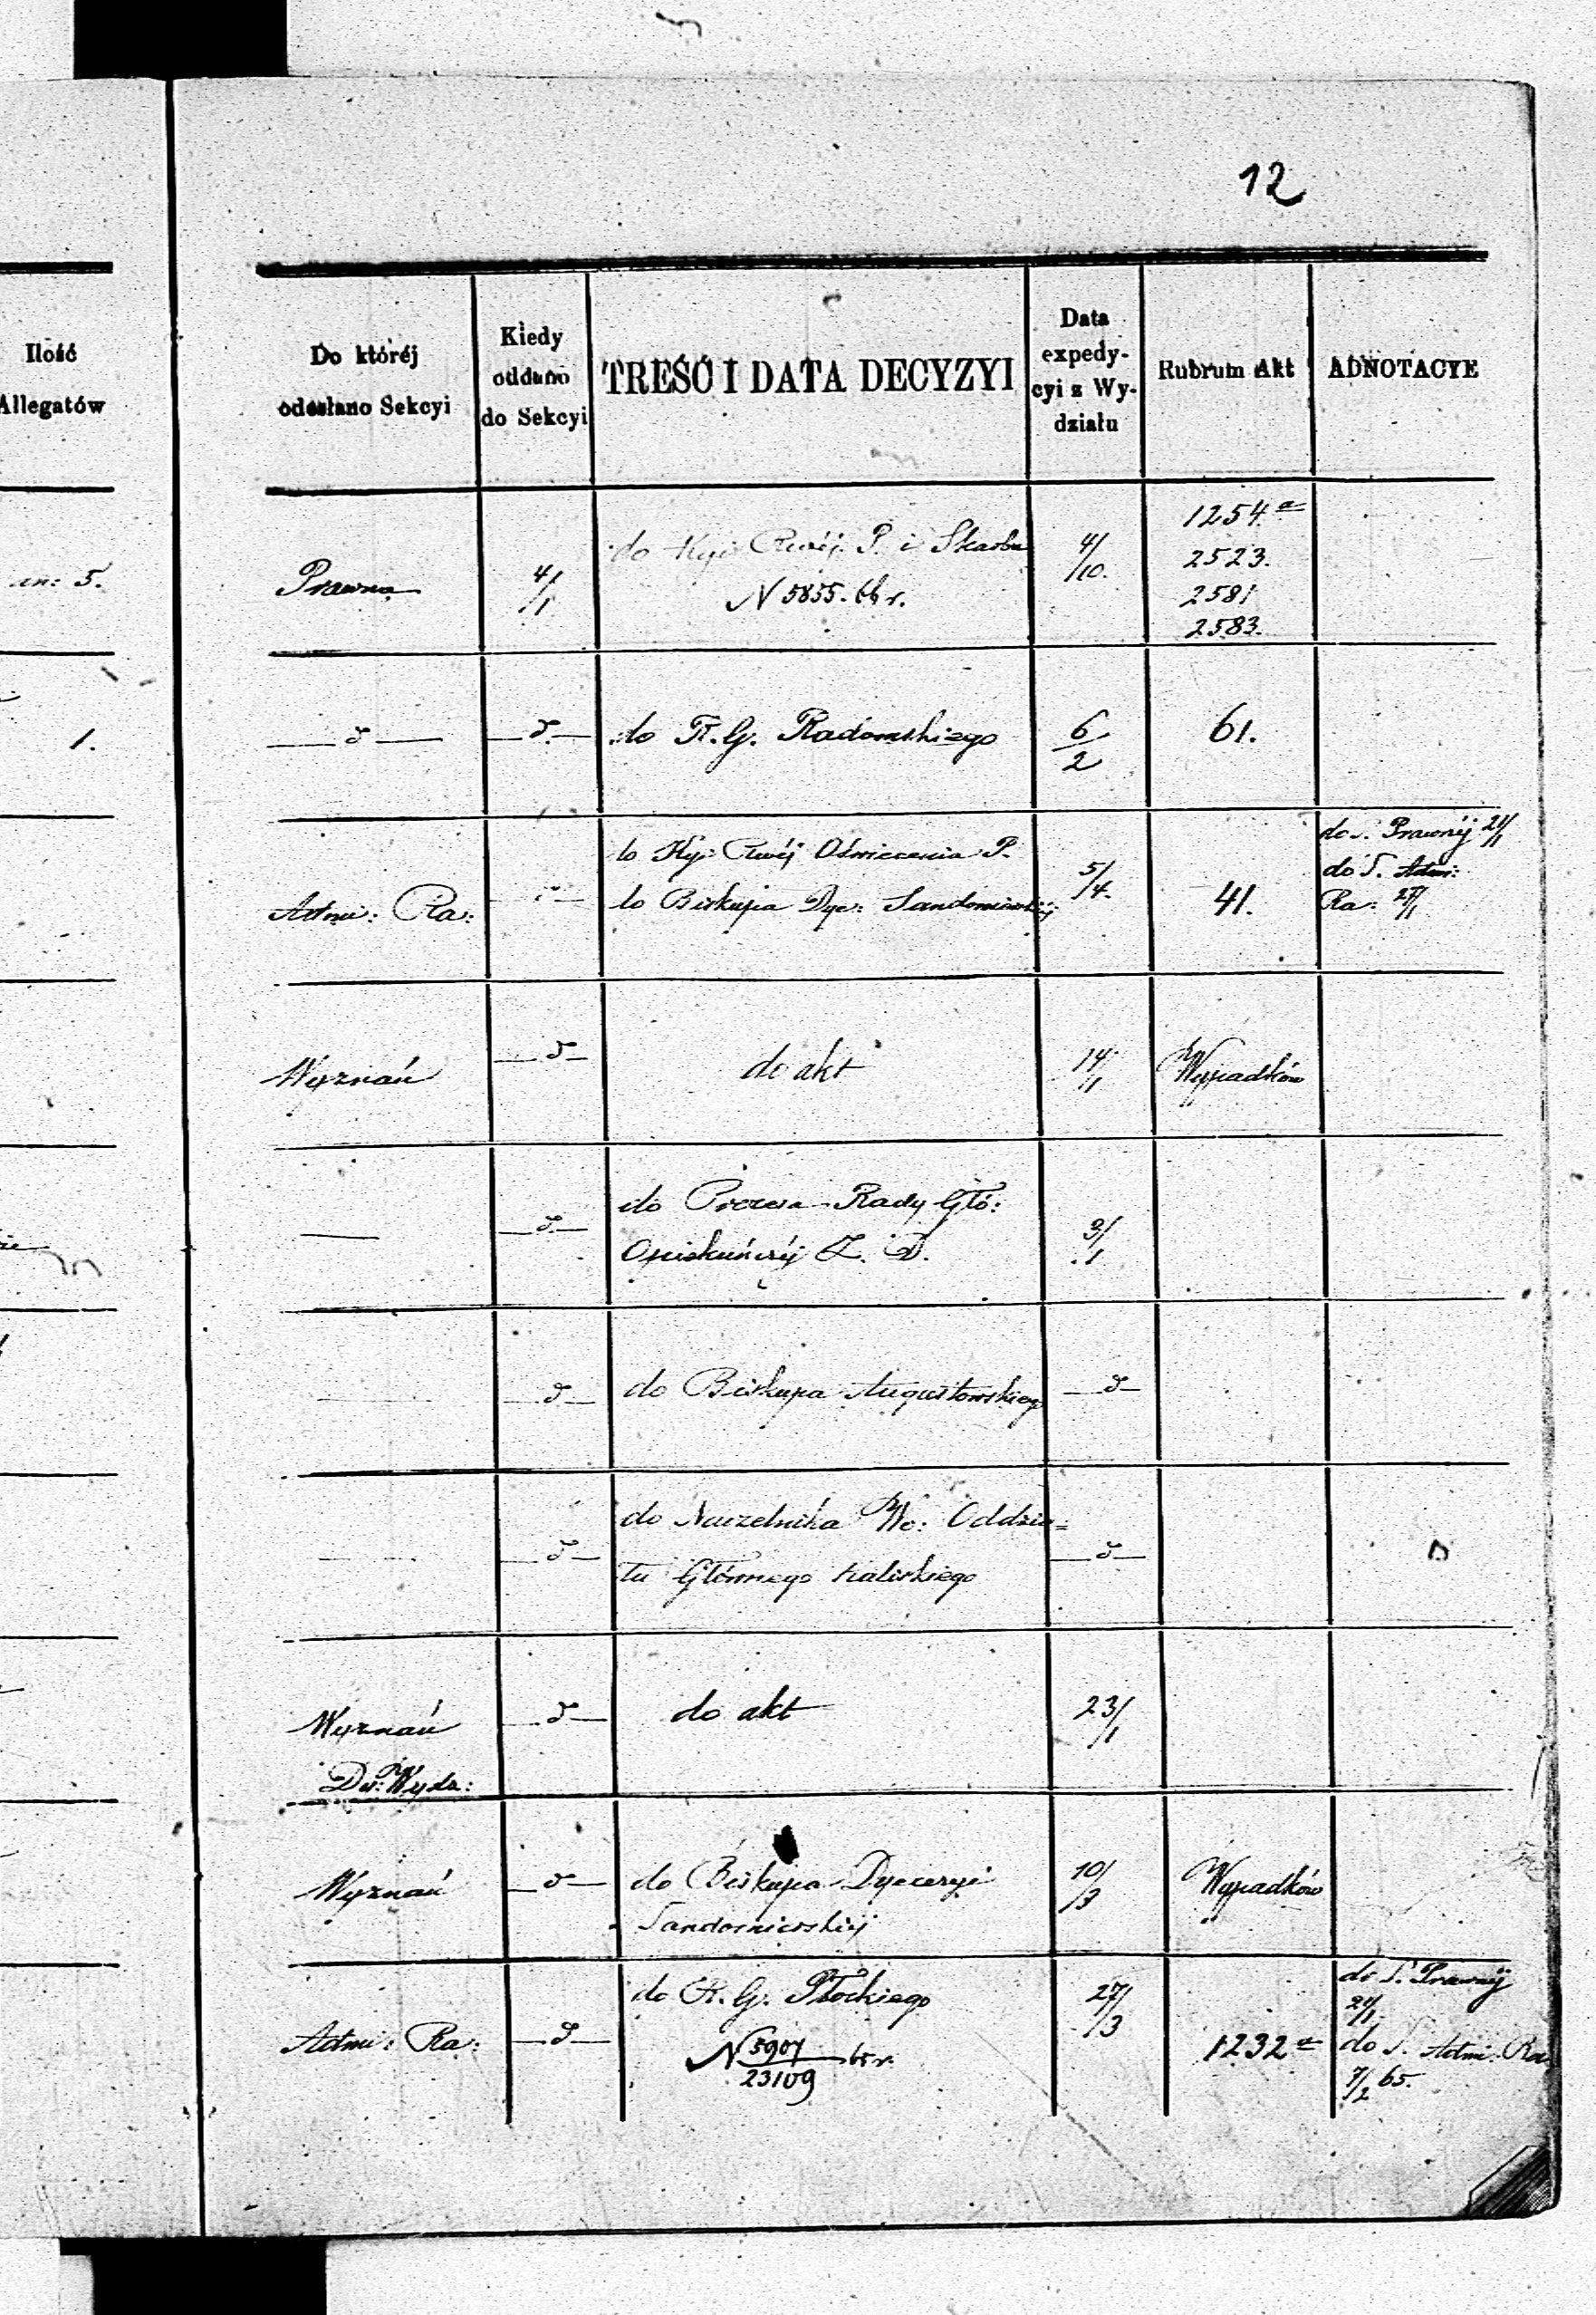 12
Ilość
Allegatów
Do któréj
odesłano Sekcyi
Kiedy
oddano
do Sekcyi
TREŚĆ I DATA DECYZYI
Data
expedy-
cyi z Wy-
działu
Rubrum Akt
ADNOTACYE
an: 5.
Prawna
4/1
do Kyi Rząéj. P. i Skarbu
N 5855. 66 r.
4/10.
1254 a
2523.
2581
2583.
1.
— d —
— d. —
do R. G. Radomskiego
6/2
61.
Admi: Ra:
do Kyi Rząéj Oświecenia P.
do Biskupa Dye: Sandomirskiéj
5/4.
41.
do S. Prawnéj 21/1
do S. Admi:
Ra: 27/1
Wyznań
— d —
do akt
14/1
Wypadków
— d. —
do Prezesa Rady Głó:
Opiekuńczéj Z. D.
3/1
— d —
do Biskupa Augustowskiego
— d —
— d —
do Naczelnika Wo: Oddzia=
łu Głównego Kaliskiego
— d —
Wyznań
Dy: Wydz:
— d —
do akt
23/1
Wyznań
— d —
do Biskupa Dyecezyi
Sandomirskiéj
10/3
Wypadków
Admi: Ra:
— d —
do R. G. Płockiego
N 5907/23109 65 r.
27/3
1232 a
do S. Prawnéj
21/1
do S. Admi: Ra
7/2 65.